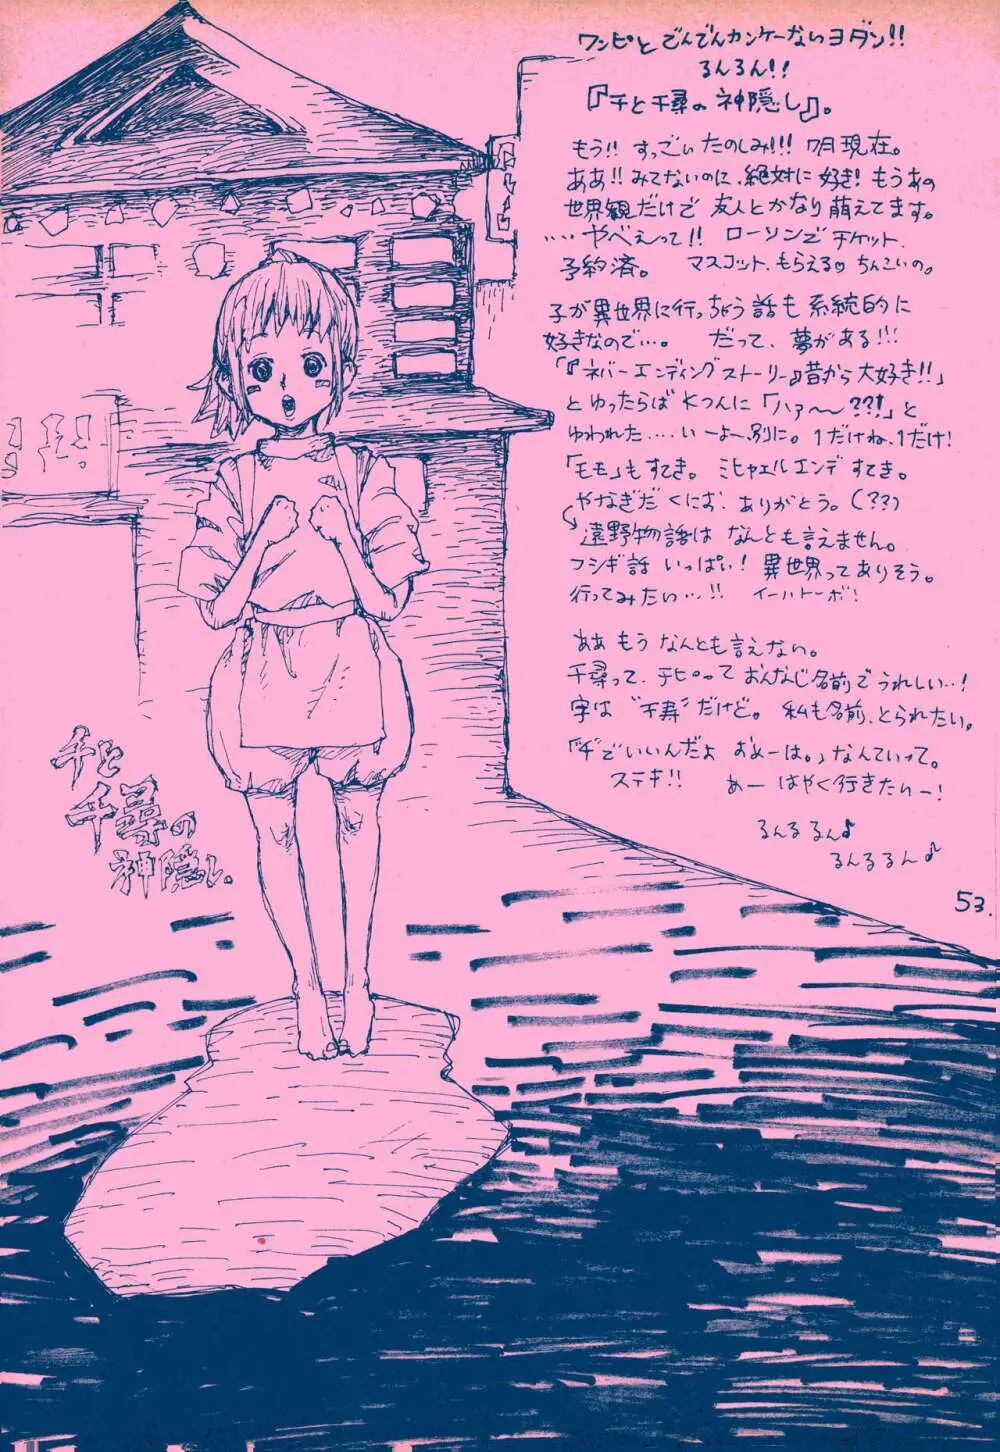 ワンピとでんでんカンケーないヨダン!!
るんるん!!
『千と千尋の神隠し』。
もう!! すっごいたのしみ!!! 7月現在。
ああ!! みてないのに、絶対に好き! もうあの
世界観だけで 友人とかなり萌えてます。
‥‥やべぇって!! ローソンでチケット、
予約済。 マスコット、もらえる♡ ちんこいの。
子が異世界に行っちゃう話も系統的に
好きなので…。 だって、夢がある!!!
「『ネバーエンディングストーリー』昔から大好き!!」
とゆったらば Kつんに「ハァ〜??!」と
ゆわれた‥‥いーよー、別に。1だけね、1だけ!
「モモ」もすてき。ミヒャエルエンデすてき。
やなぎだくにお、ありがとう。(??)
遠野物語は なんとも言えません。
フシギ話 いっぱい! 異世界ってありそう。
行ってみたい…!! イーハトーボ!
ああ もう なんとも言えない。
千尋って、チヒロって おんなじ名前でうれしい…!
字は"千寿"だけど。 私も名前、とられたい。
「"千"でいいんだよ おめーは。」なんていって。
ステキ!! あー はやく行きたいー!
るんるるん♪
るんるるん♪
千と
千尋の
神隠し
53.